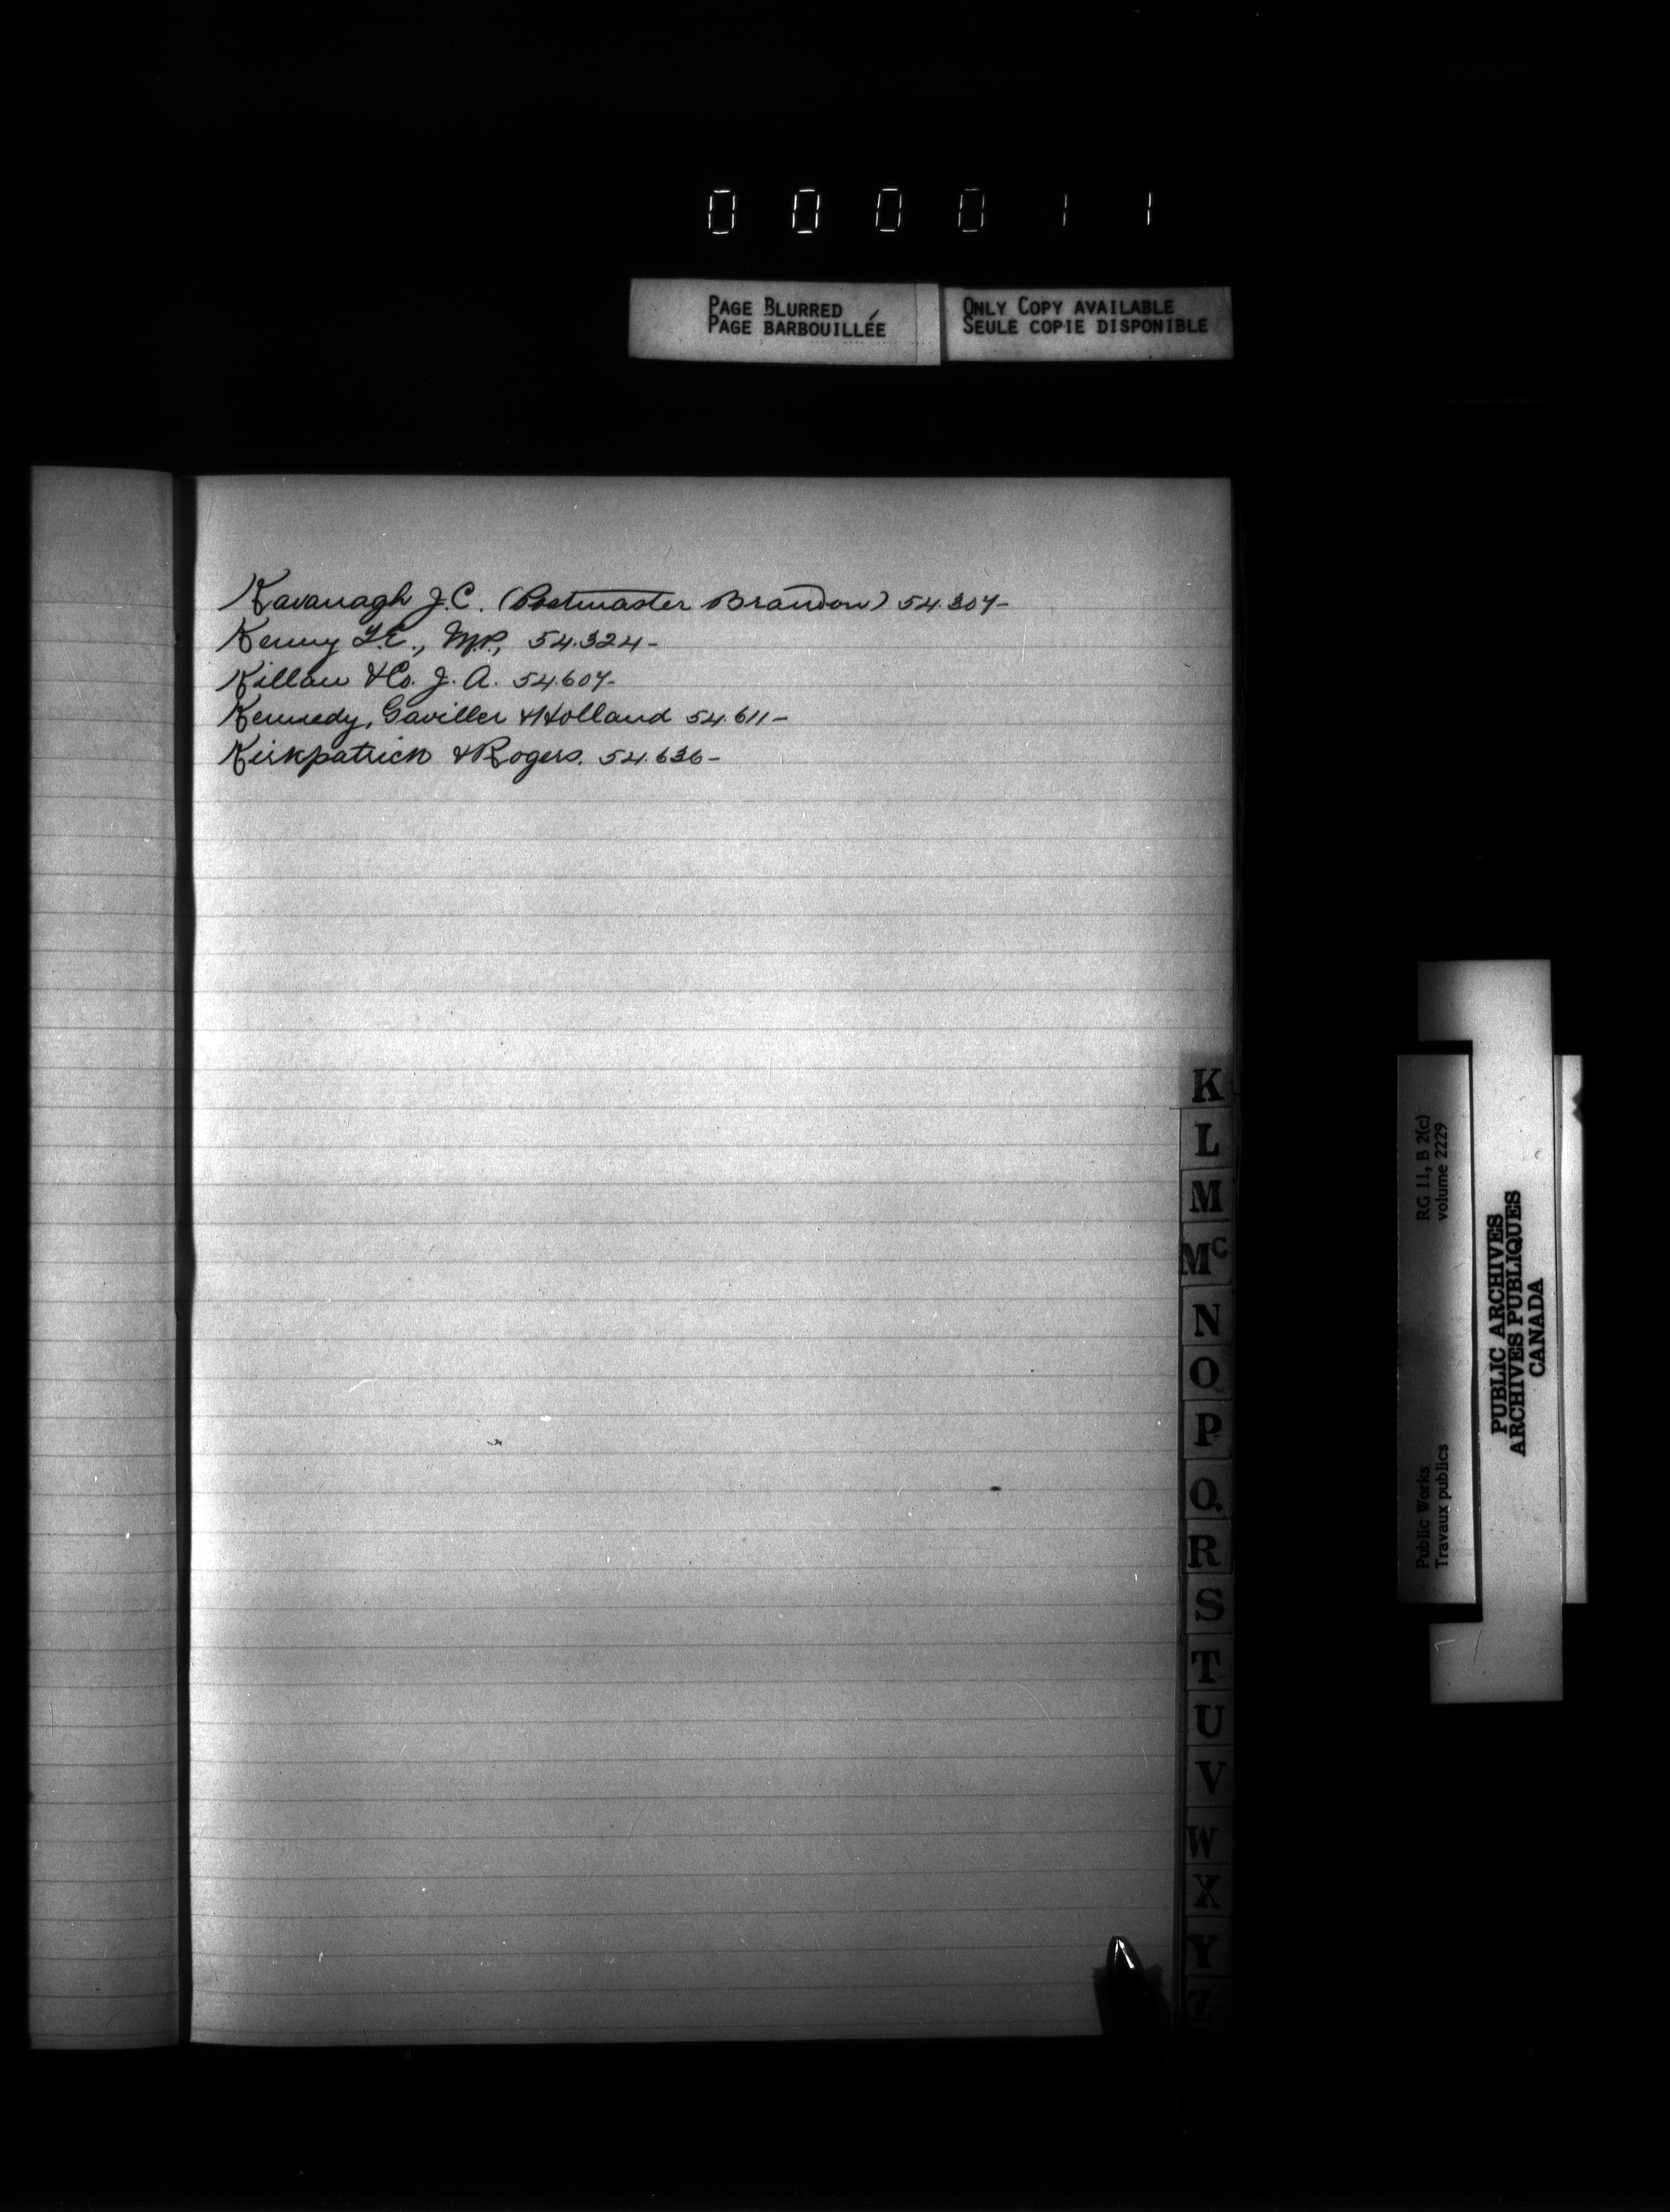 000011
PAGE BLURRED
PAGE BARBOUILLÉE
ONLY COPY AVAILABLE
SEULE COPIE DISPONIBLE
Kavanagh J.C. (Postmaster Brandon) 54.307-
Kenny T.E., M.P., 54.324-
Killam & Co. J. A. 54.607-
Kennedy, Gaviller & Holland 54.611-
Kirkpatrick & Rogers. 54.636-
K
L
M
Mc
N
O
P
Q
R
S
T
U
V
W
X
Y
Z
RG 11, B 2(c)
volume 2229
Public Works
Travaux publics
PUBLIC ARCHIVES
ARCHIVES PUBLIQUES
CANADA